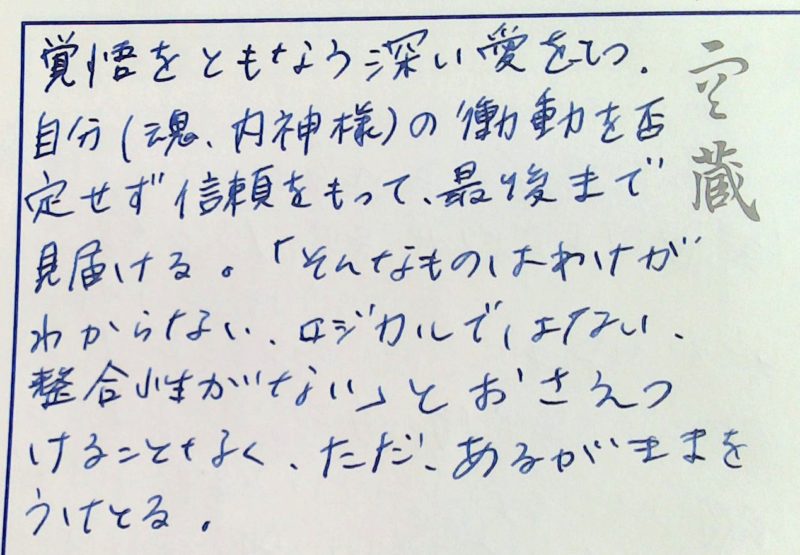 覚悟をともなう深い愛をもつ.
自分(魂、内神様)の衝動を否
定せず信頼をもって、最後まで
見届ける。「そんなものはわけが
わからない、ロジカルではない、
整合性がない」とおさえつ
けることもなく、ただ、あるがままを
うけとる。
空蔵